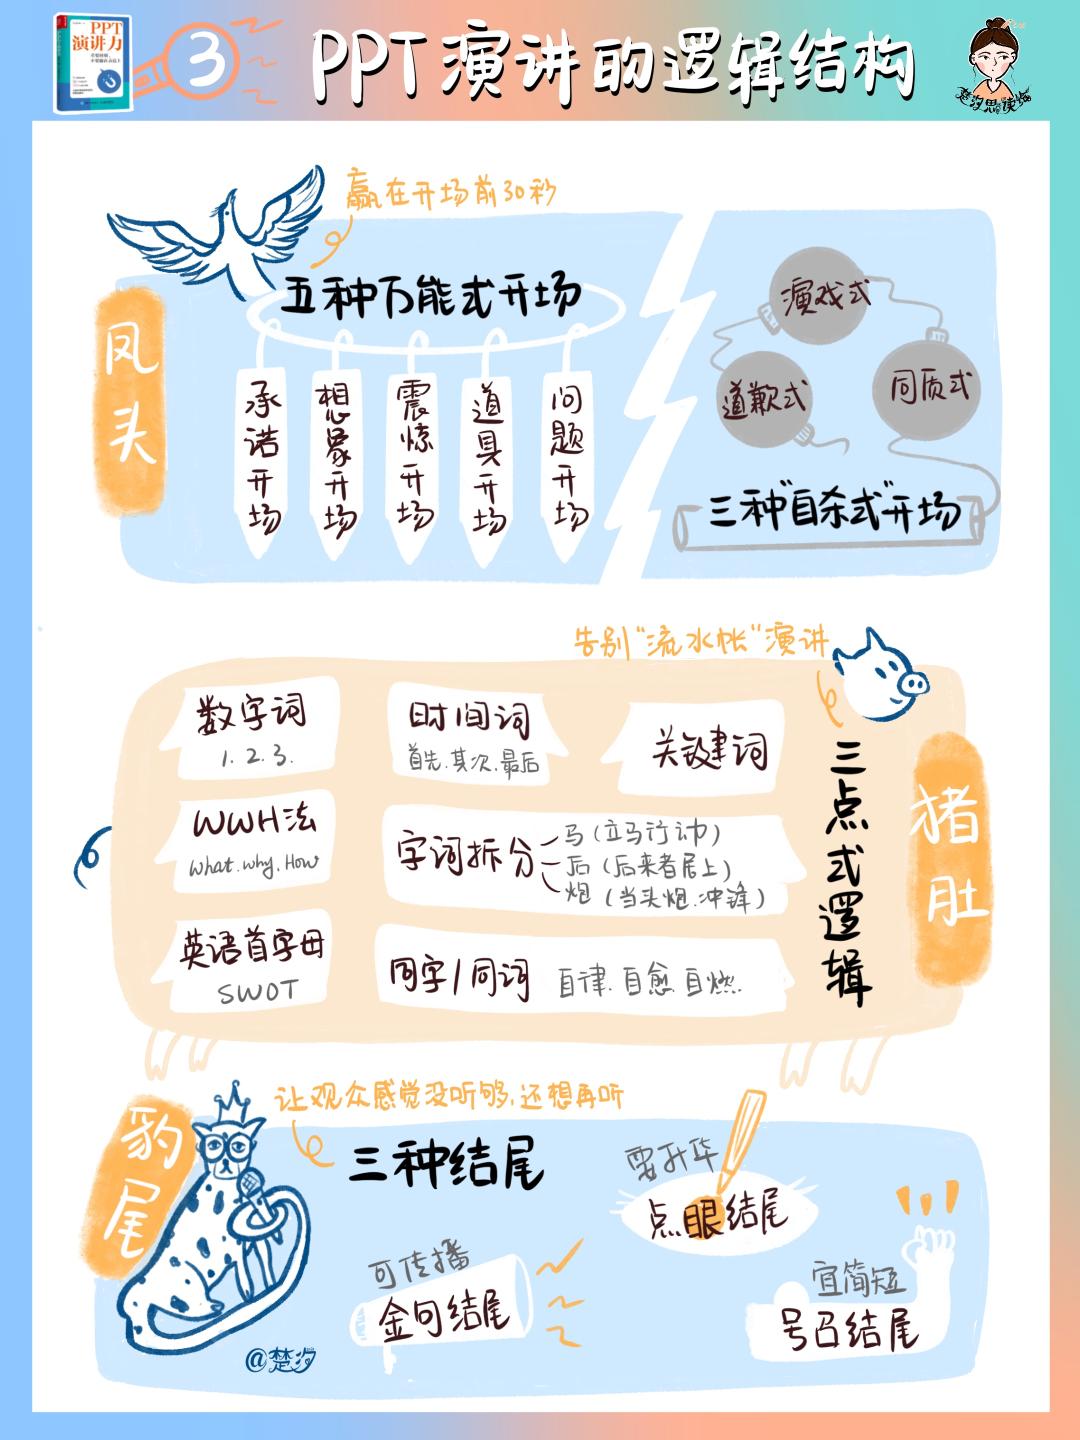 PPT
演讲力
3
PPT演讲的逻辑结构
楚汐思维读绘
赢在开场前30秒
凤头
五种万能式开场
承诺开场
想象开场
震惊开场
道具开场
问题开场
演戏式
道歉式
同质式
三种"自杀式"开场
告别"流水帐"演讲
猪肚
三点式逻辑
数字词
1. 2. 3.
时间词
首先.其次.最后
关键词
WWH法
What.why.How
字词拆分
马(立马行动)
后(后来者居上)
炮(当头炮.冲锋)
英语首字母
SWOT
同字/同词
自律.自愈.自燃.
豹尾
让观众感觉没听够,还想再听
三种结尾
要升华
点眼结尾
可传播
金句结尾
宜简短
号召结尾
@楚汐